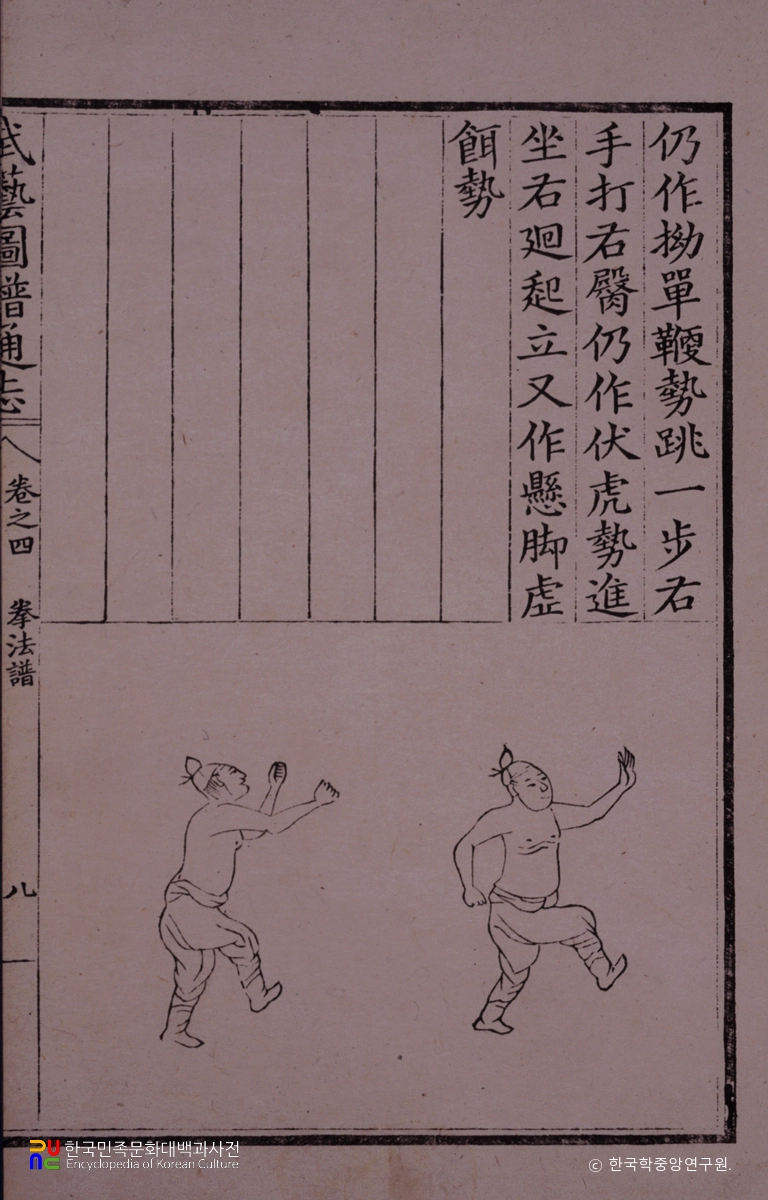 仍作拗單鞭勢跳一步右
手打右臀仍作伏虎勢進
坐右廻起立又作懸脚虛
餌勢
武藝圖譜通志
卷之四 拳法譜
八
한국민족문화대백과사전
Encyclopedia of Korean Culture
© 한국학중앙연구원.